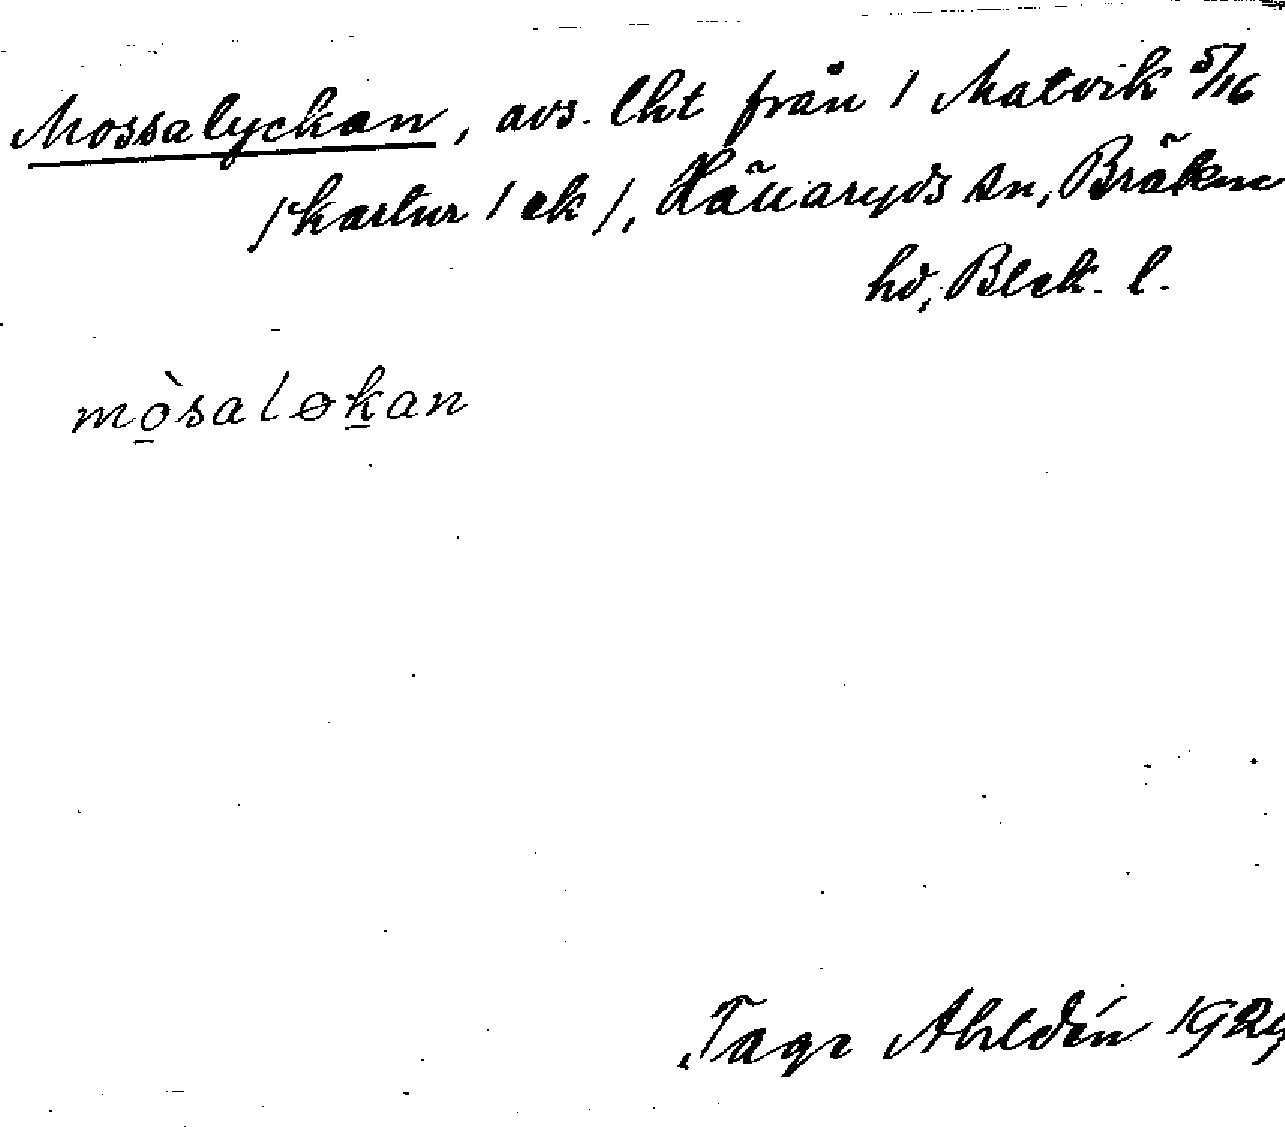 Mossalyckan, avs. lht från 1 Matvik 5/16
/ kartur / ek /, Hällaryds sn, Bräkne
hd, Blek. l.
mòsaløkan
Tage Ahldén 1929